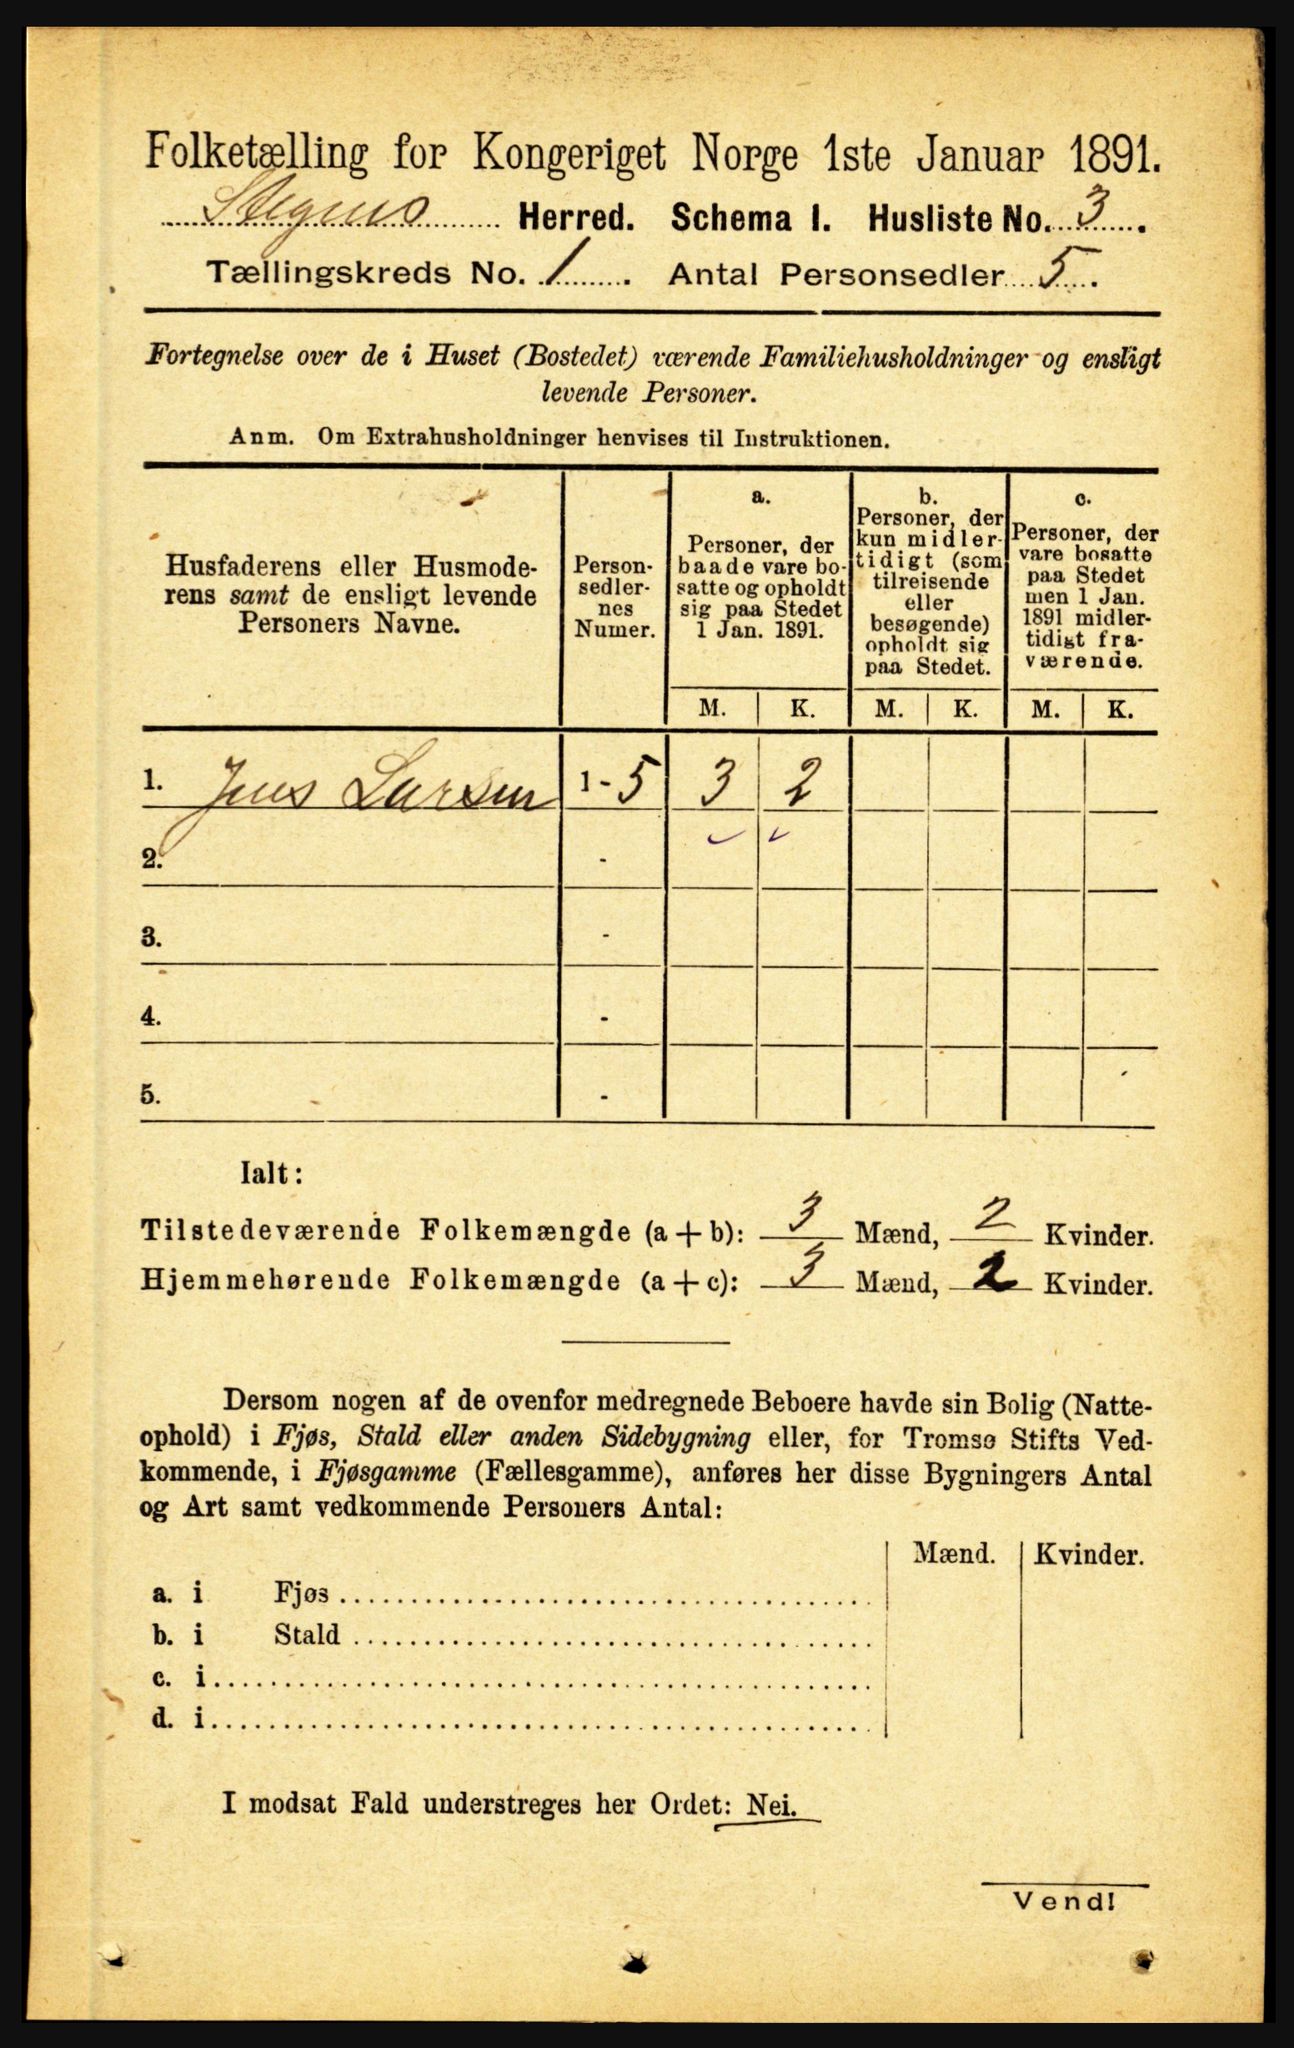 Folketælling for Kongeriget Norge 1ste Januar 1891.
Stegens Herred. Schema I. Husliste No. 3.
Tællingskreds No. 1. Antal Personsedler 5.
Fortegnelse over de i Huset (Bostedet) værende Familiehusholdninger og ensligt
levende Personer.
Anm. Om Extrahusholdninger henvises til Instruktionen.
Husfaderens eller Husmode-
rens samt de ensligt levende
Personers Navne.
Person-
sedler-
nes
Numer.
a.
Personer, der
baade vare bo-
satte og opholdt
sig paa Stedet
1 Jan. 1891.
b.
Personer, der
kun midler-
tidigt (som
tilreisende
eller
besøgende)
opholdt sig
paa Stedet.
c.
Personer, der
vare bosatte
paa Stedet
men 1 Jan.
1891 midler-
tidigt fra-
værende.
M. K. M. K. M. K.
1. Jens Larsen 1 - 5 3 2
2. -
3. -
4. -
5. -
Ialt:
Tilstedeværende Folkemængde (a + b): 3 Mænd, 2 Kvinder.
Hjemmehørende Folkemængde (a + c): 3 Mænd, 2 Kvinder.
Dersom nogen af de ovenfor medregnede Beboere havde sin Bolig (Natte-
ophold) i Fjøs, Stald eller anden Sidebygning eller, for Tromsø Stifts Ved-
kommende, i Fjøsgamme (Fællesgamme), anføres her disse Bygningers Antal
og Art samt vedkommende Personers Antal:
Mænd. Kvinder.
a. i Fjøs
b. i Stald
c. i
d. i
I modsat Fald understreges her Ordet: Nei.
Vend!